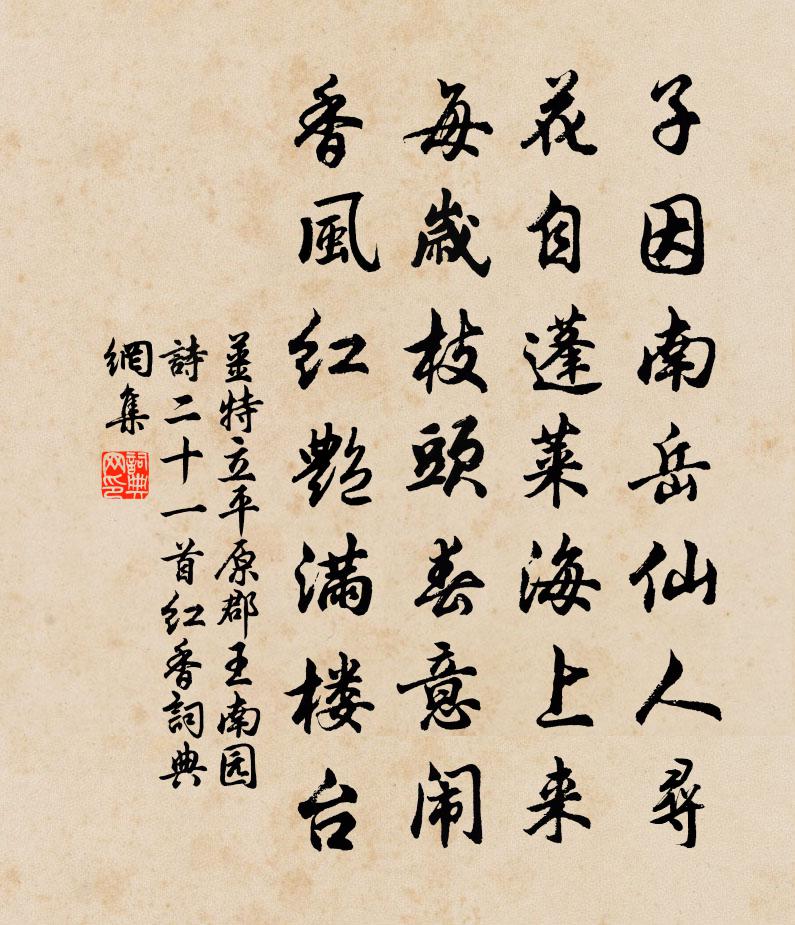 子因南岳仙人尋
花自蓬萊海上来
每歲枝頭春意闹
香風红艷满楼台
姜特立平原郡王南园
詩二十一首红香詞典
網集
詞典网印